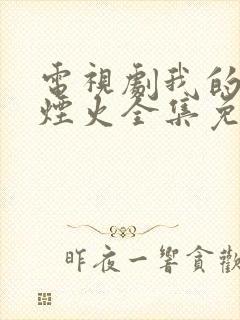 電視劇我的
煙火全集免
昨夜一響貪歡